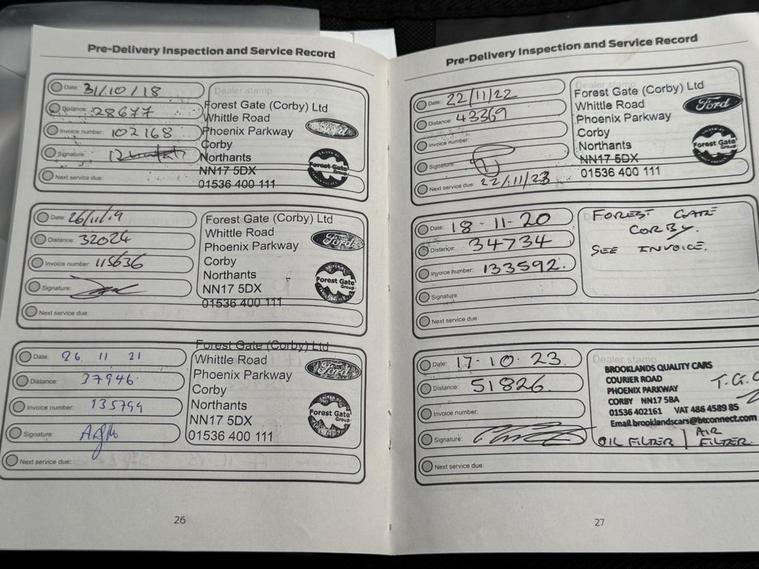 Pre-Delivery Inspection and Service Record
Date: 31/10/18
Distance: 28677
Invoice number: 102168
Signature:
Next service due:
Dealer stamp
Forest Gate (Corby) Ltd
Whittle Road
Phoenix Parkway
Corby
Northants
NN17 5DX
01536 400 111
Ford
Forest Gate
Group
Date: 26/11/19
Distance: 32024
Invoice number: 115636
Signature:
Next service due:
Forest Gate (Corby) Ltd
Whittle Road
Phoenix Parkway
Corby
Northants
NN17 5DX
01536 400 111
Ford
Forest Gate
Group
Date: 26 11 21
Distance: 37946
Invoice number: 135799
Signature:
Next service due:
Forest Gate (Corby) Ltd
Whittle Road
Phoenix Parkway
Corby
Northants
NN17 5DX
01536 400 111
Ford
Forest Gate
Group
26
Pre-Delivery Inspection and Service Record
Date: 22/11/22
Distance: 43369
Invoice number:
Signature:
Next service due: 22/11/23
Forest Gate (Corby) Ltd
Whittle Road
Phoenix Parkway
Corby
Northants
NN17 5DX
01536 400 111
Ford
Forest Gate
Group
Date: 18-11-20
Distance: 34734
Invoice number: 133592.
Signature:
Next service due:
FOREST GATE
CORBY.
SEE INVOICE.
Date: 17-10-23.
Distance: 51826
Invoice number:
Signature:
Next service due:
Dealer stamp
BROOKLANDS QUALITY CARS
COURIER ROAD
PHOENIX PARKWAY
CORBY NN17 5BA
01536 402161 VAT 486 4589 85
Email brooklandscars@btconnect.com
OIL FILTER | AIR FILTER
27